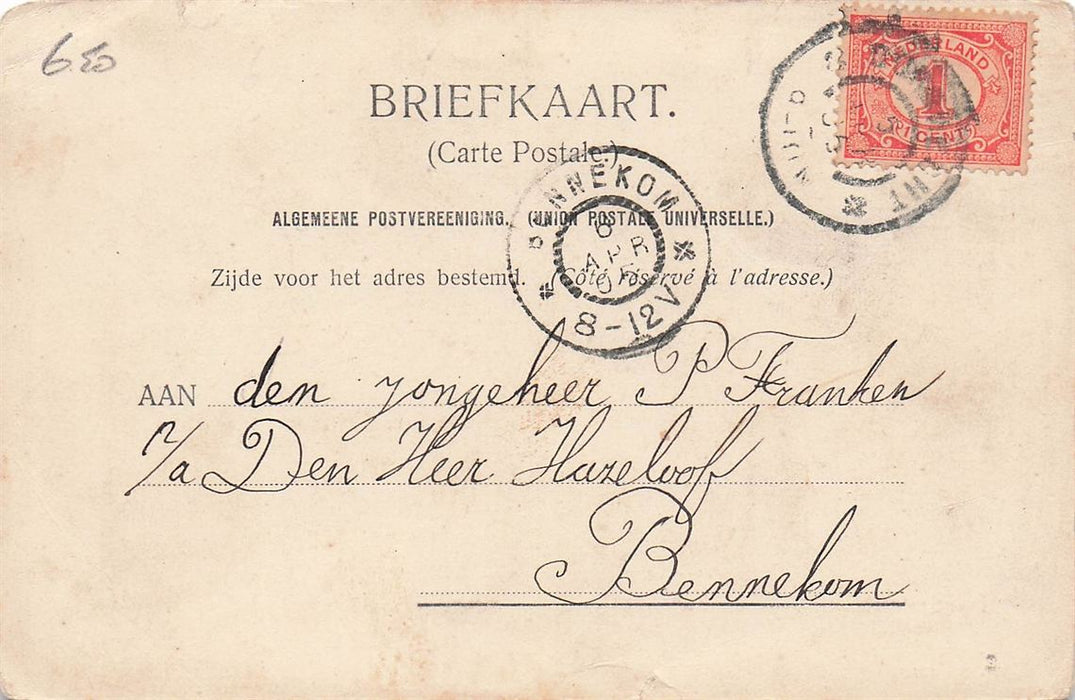 6 50
NEDERLAND
1
CENT
BRIEFKAART.
(Carte Postale.)
ALGEMEENE POSTVEREENIGING. (UNION POSTALE UNIVERSELLE.)
Zijde voor het adres bestemd. (Côté réservé à l'adresse.)
BENNEKOM
6
APR
05
8-12V
AAN den jongeheer P Franken
Den Heer Hazeloof
Bennekom